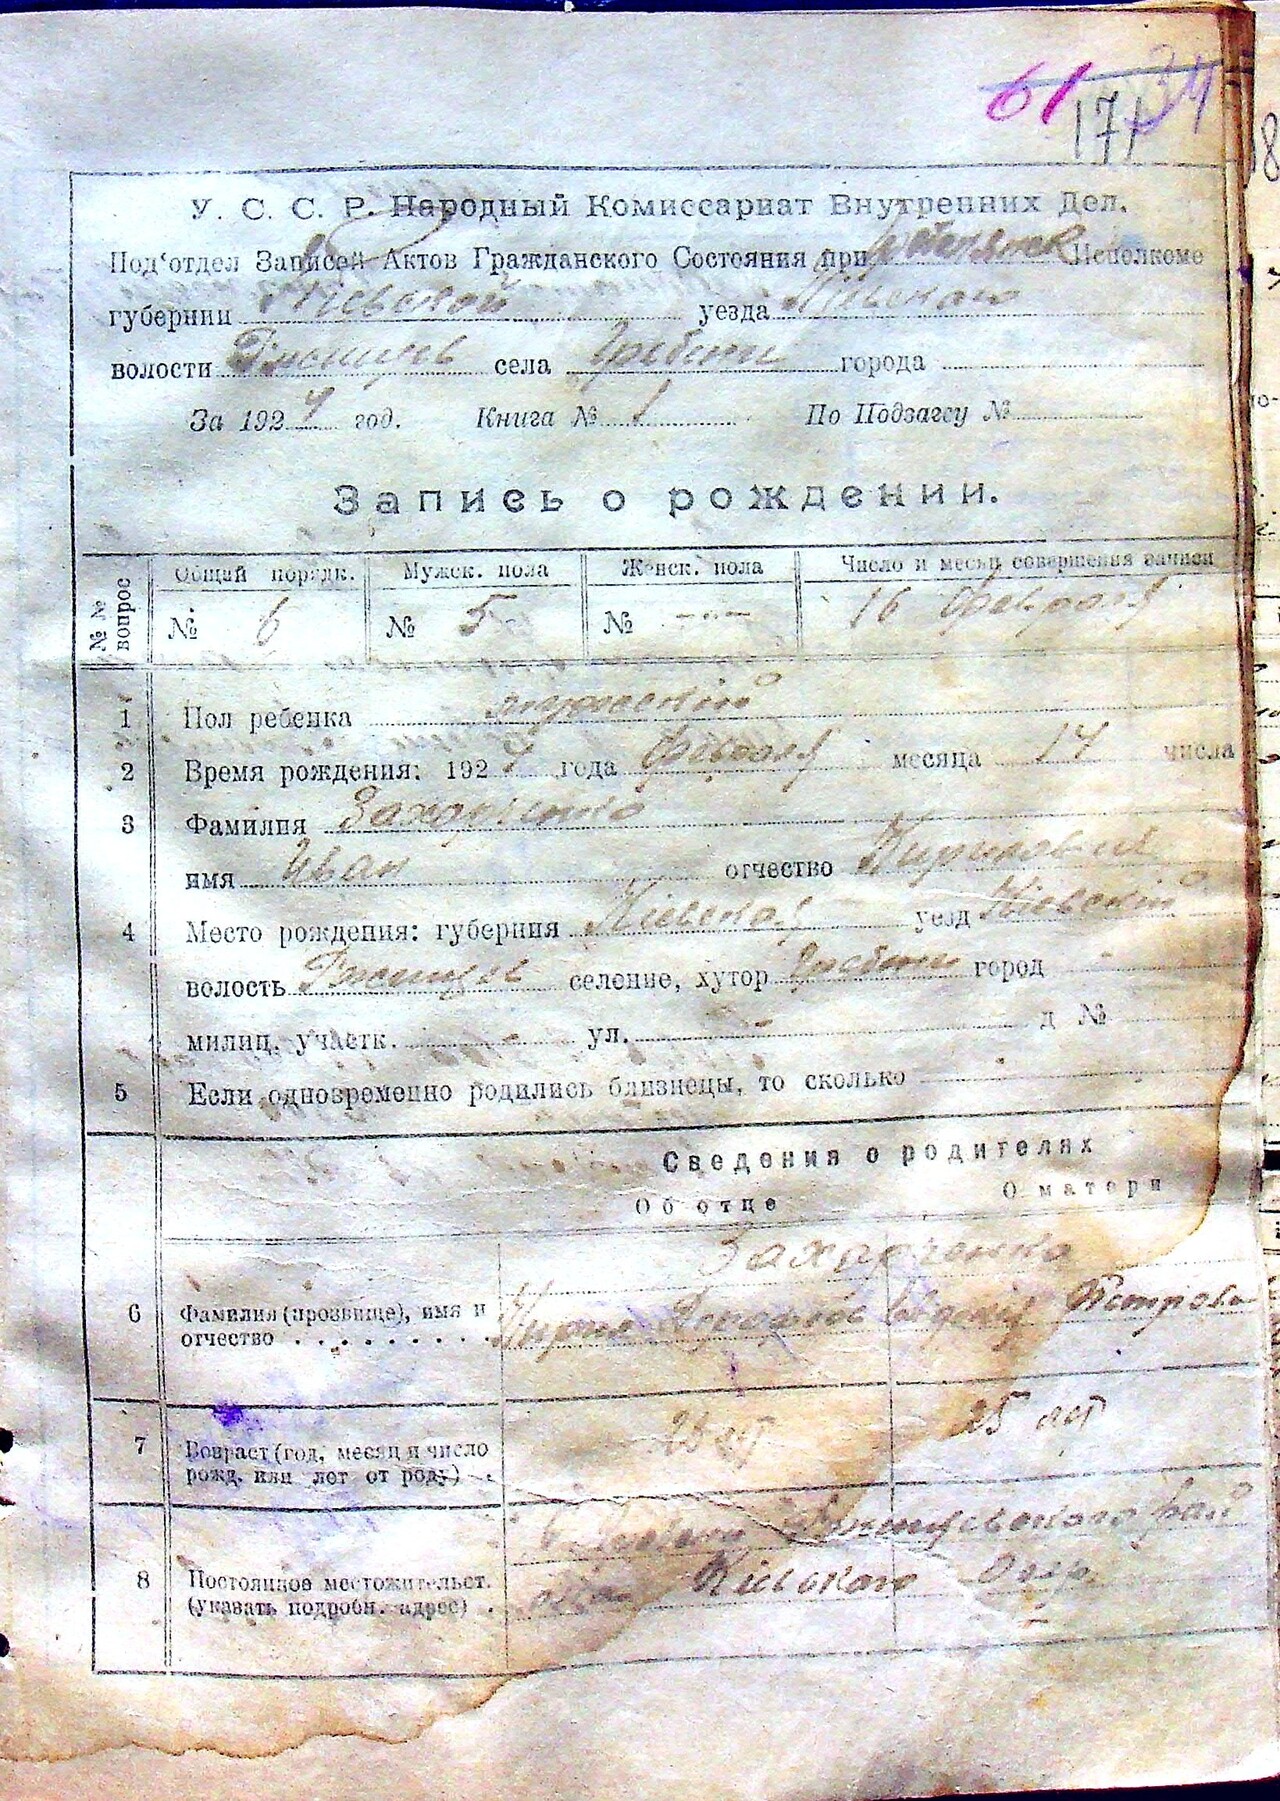 61 34
171
У. С. С. Р. Народный Комиссариат Внутренних Дел.
Под'отдел Записей Актов Гражданского Состояния при Исполкоме
губернии Кіевской уезда Кіевского
волости Ржищев села Гребени города
За 1924 год. Книга № 1 По Подзагсу №
Запись о рождении.
№№ вопрос Общий порядк. Мужск. пола Женск. пола Число и месяц совершения записи
№ 6 № 5 № - - - 16 Февраля
1 Пол ребенка мужескій
2 Время рождения: 1924 года Февраля месяца 14 числа
3 Фамилия Захарченко
имя Иван отчество Кирилович
4 Место рождения: губерния Кіевская уезд Кіевскій
волость Ржищев селение, хутор Гребени город -
милиц. участк. - ул. - д №
5 Если одновременно родились близнецы, то сколько -
Сведения о родителях
Об отце О матери
Захарченко
6 Фамилия (прозвище), имя и Кирил Дорофеев Евдокія Петрова
отчество . . . . . . . . .
25 лет
7 Возраст (год, месяц и число
рожд. или лет от роду) .
Гребени Ржищевского рай
8 Постоянное местожительст. Кіевского Окр.
(указать подробн. адрес) .